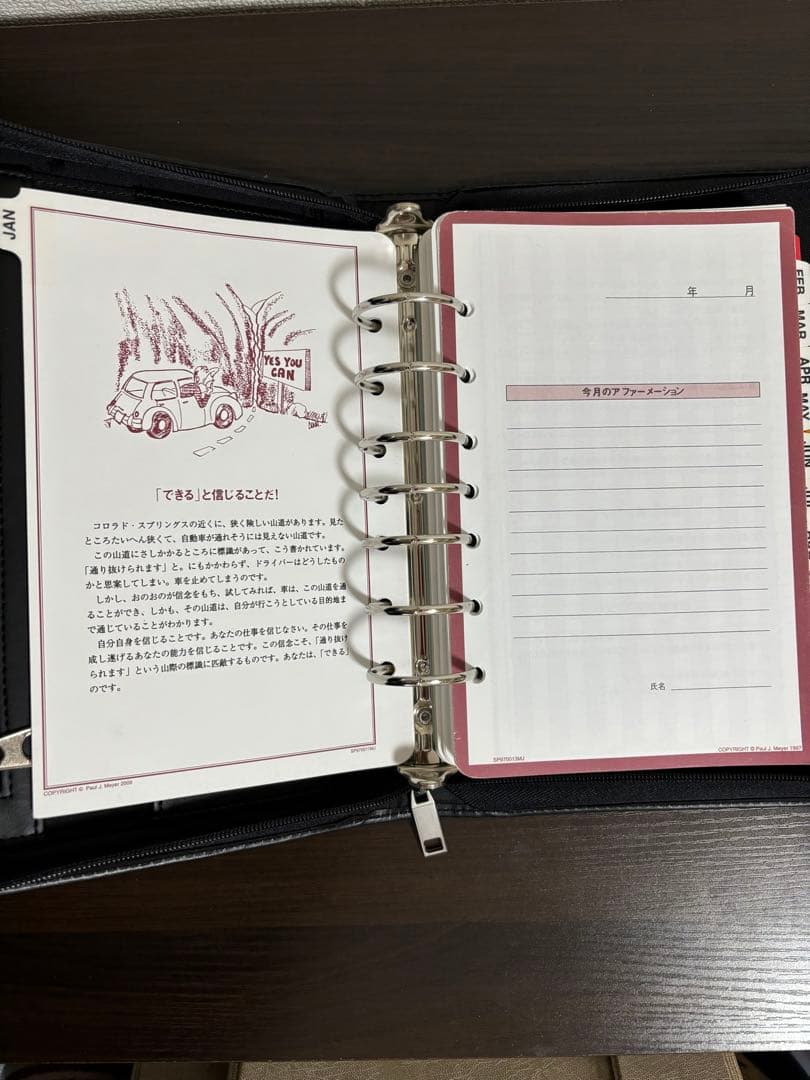 JAN
YES YOU
CAN
「できる」と信じることだ!
コロラド・スプリングスの近くに、狭く険しい山道があります。見た
ところたいへん狭くて、自動車が通れそうには見えない山道です。
この山道にさしかかるところに標識があって、こう書かれています。
「通り抜けられます」と。にもかかわらず、ドライバーはどうしたもの
かと思案してしまい。車を止めてしまうのです。
しかし、おのおのが信念をもち、試してみれば、車は、この山道を通
ることができ、しかも、その山道は、自分が行こうとしている目的地ま
で通じていることがわかります。
自分自身を信じることです。あなたの仕事を信じなさい。その仕事を
成し遂げるあなたの能力を信じることです。この信念こそ、「通り抜け
られます」という山際の標識に匹敵するものです。あなたは、「できる」
のです。
SP970017MJ
COPYRIGHT © Paul J. Meyer 2000
年 月
今月のアファーメーション
氏名
SP970013MJ
COPYRIGHT © Paul J. Meyer 1997
FEB
MAR
APR
MAY
JUN